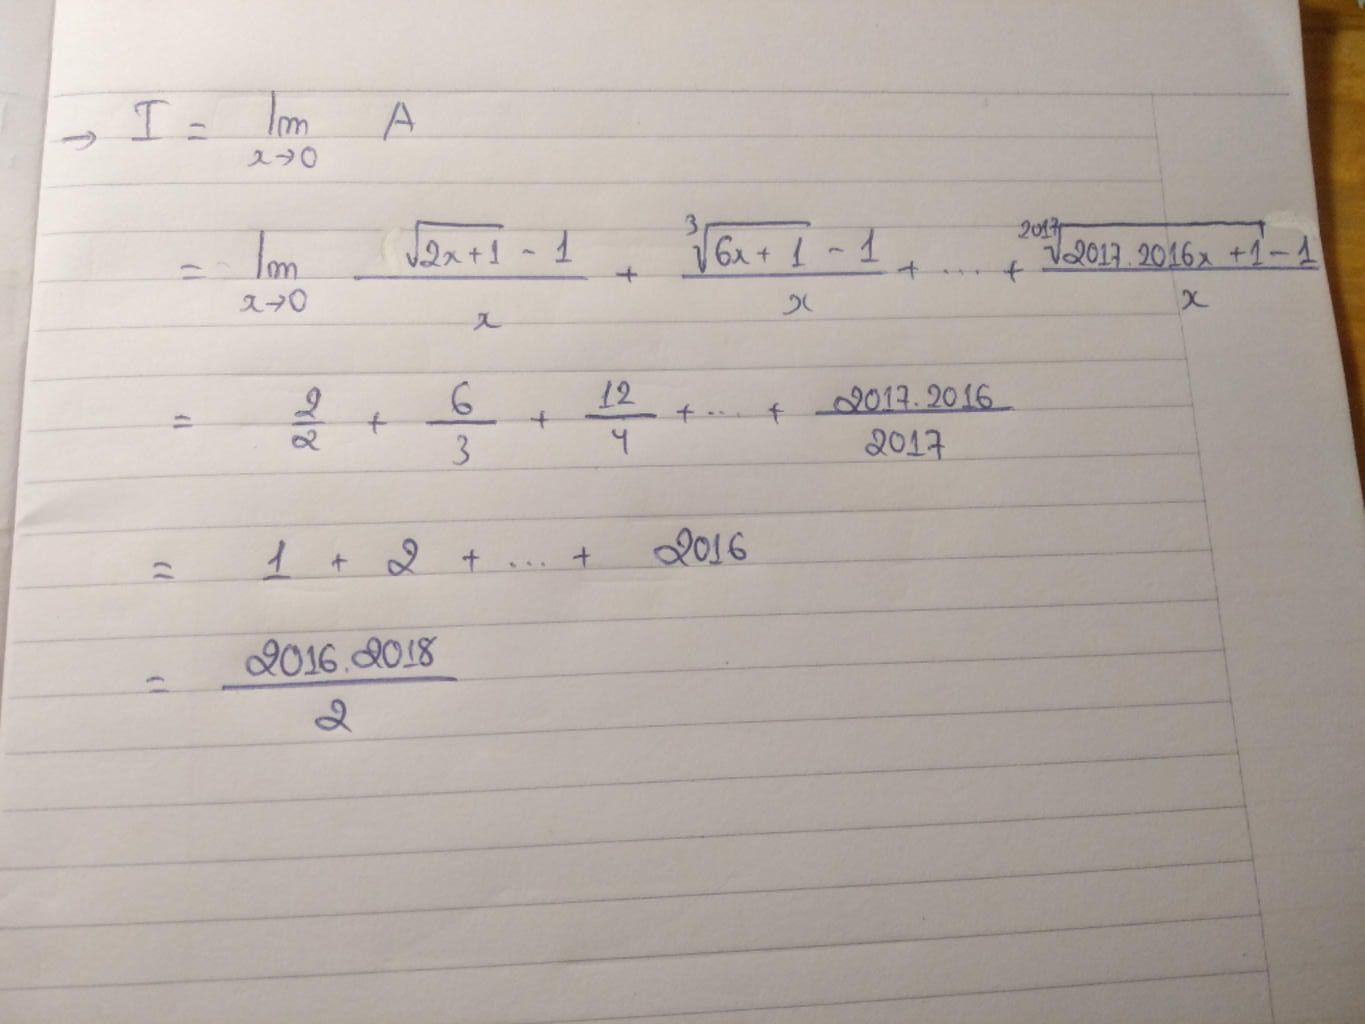 → I = lim x→0 A
= lim x→0 (√(2x+1) - 1)/x + (∛(6x+1) - 1)/x + .... + (²⁰¹⁷√(2017.2016x +1) - 1)/x
= 2/2 + 6/3 + 12/4 + .... + 2017.2016/2017
= 1 + 2 + ... + 2016
= 2016.2018/2